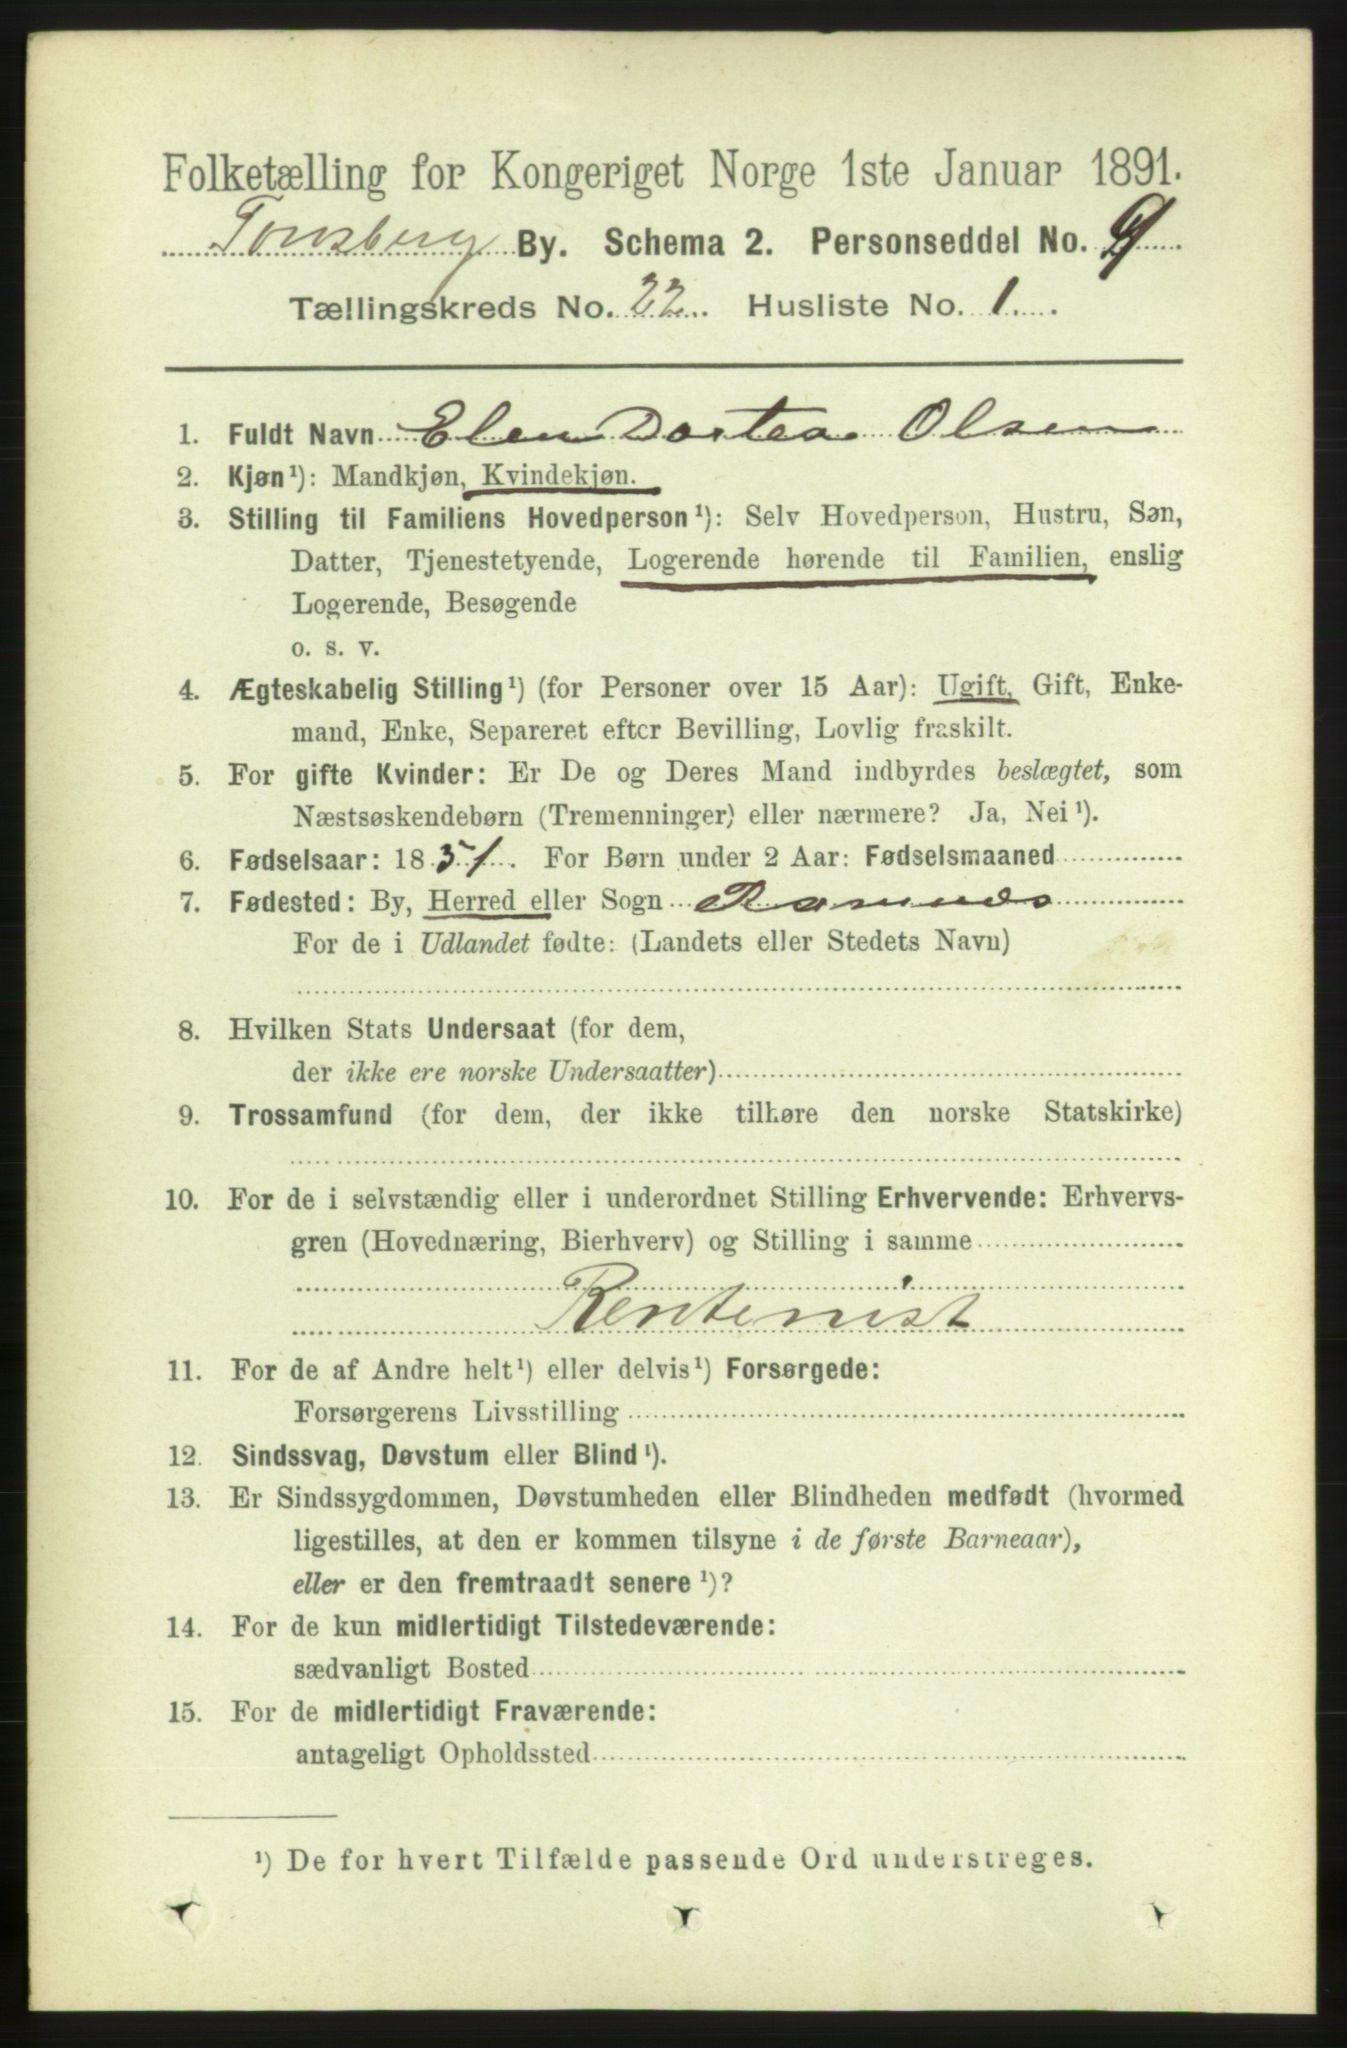 Folketælling for Kongeriget Norge 1ste Januar 1891.
Tønsberg By. Schema 2. Personseddel No. 9
Tællingskreds No. 22. Husliste No. 1.
1. Fuldt Navn Elen Dortea Olsen
2. Kjøn¹): Mandkjøn, Kvindekjøn.
3. Stilling til Familiens Hovedperson¹): Selv Hovedperson, Hustru, Søn,
Datter, Tjenestetyende, Logerende hørende til Familien, enslig
Logerende, Besøgende
o. s. v.
4. Ægteskabelig Stilling¹) (for Personer over 15 Aar): Ugift, Gift, Enke-
mand, Enke, Separeret efter Bevilling, Lovlig fraskilt.
5. For gifte Kvinder: Er De og Deres Mand indbyrdes beslægtet, som
Næstsøskendebørn (Tremenninger) eller nærmere? Ja, Nei¹).
6. Fødselsaar: 1851. For Børn under 2 Aar: Fødselsmaaned
7. Fødested: By, Herred eller Sogn Ramnes
For de i Udlandet fødte: (Landets eller Stedets Navn)
8. Hvilken Stats Undersaat (for dem,
der ikke ere norske Undersaatter)
9. Trossamfund (for dem, der ikke tilhøre den norske Statskirke)
10. For de i selvstændig eller i underordnet Stilling Erhvervende: Erhvervs-
gren (Hovednæring, Bierhverv) og Stilling i samme
Rentenist
11. For de af Andre helt¹) eller delvis¹) Forsørgede:
Forsørgerens Livsstilling
12. Sindssvag, Døvstum eller Blind¹).
13. Er Sindssygdommen, Døvstumheden eller Blindheden medfødt (hvormed
ligestilles, at den er kommen tilsyne i de første Barneaar),
eller er den fremtraadt senere¹)?
14. For de kun midlertidigt Tilstedeværende:
sædvanligt Bosted
15. For de midlertidigt Fraværende:
antageligt Opholdssted
¹) De for hvert Tilfælde passende Ord understreges.